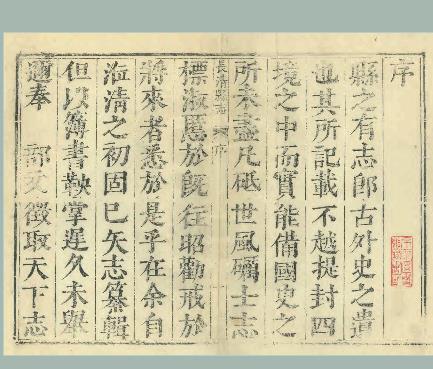 序
縣之有志卽古外史之遺
也其所記載不越提封四
境之中而實能備國史之
所未盡凡砥世風礪士志
長清縣志 序
標淑慝於旣往昭勸戒於
將來者悉於是乎在余自
涖清之初固巳矢志纂輯
但以簿書鞅掌遲久未舉
適奉 部文徵取天下志